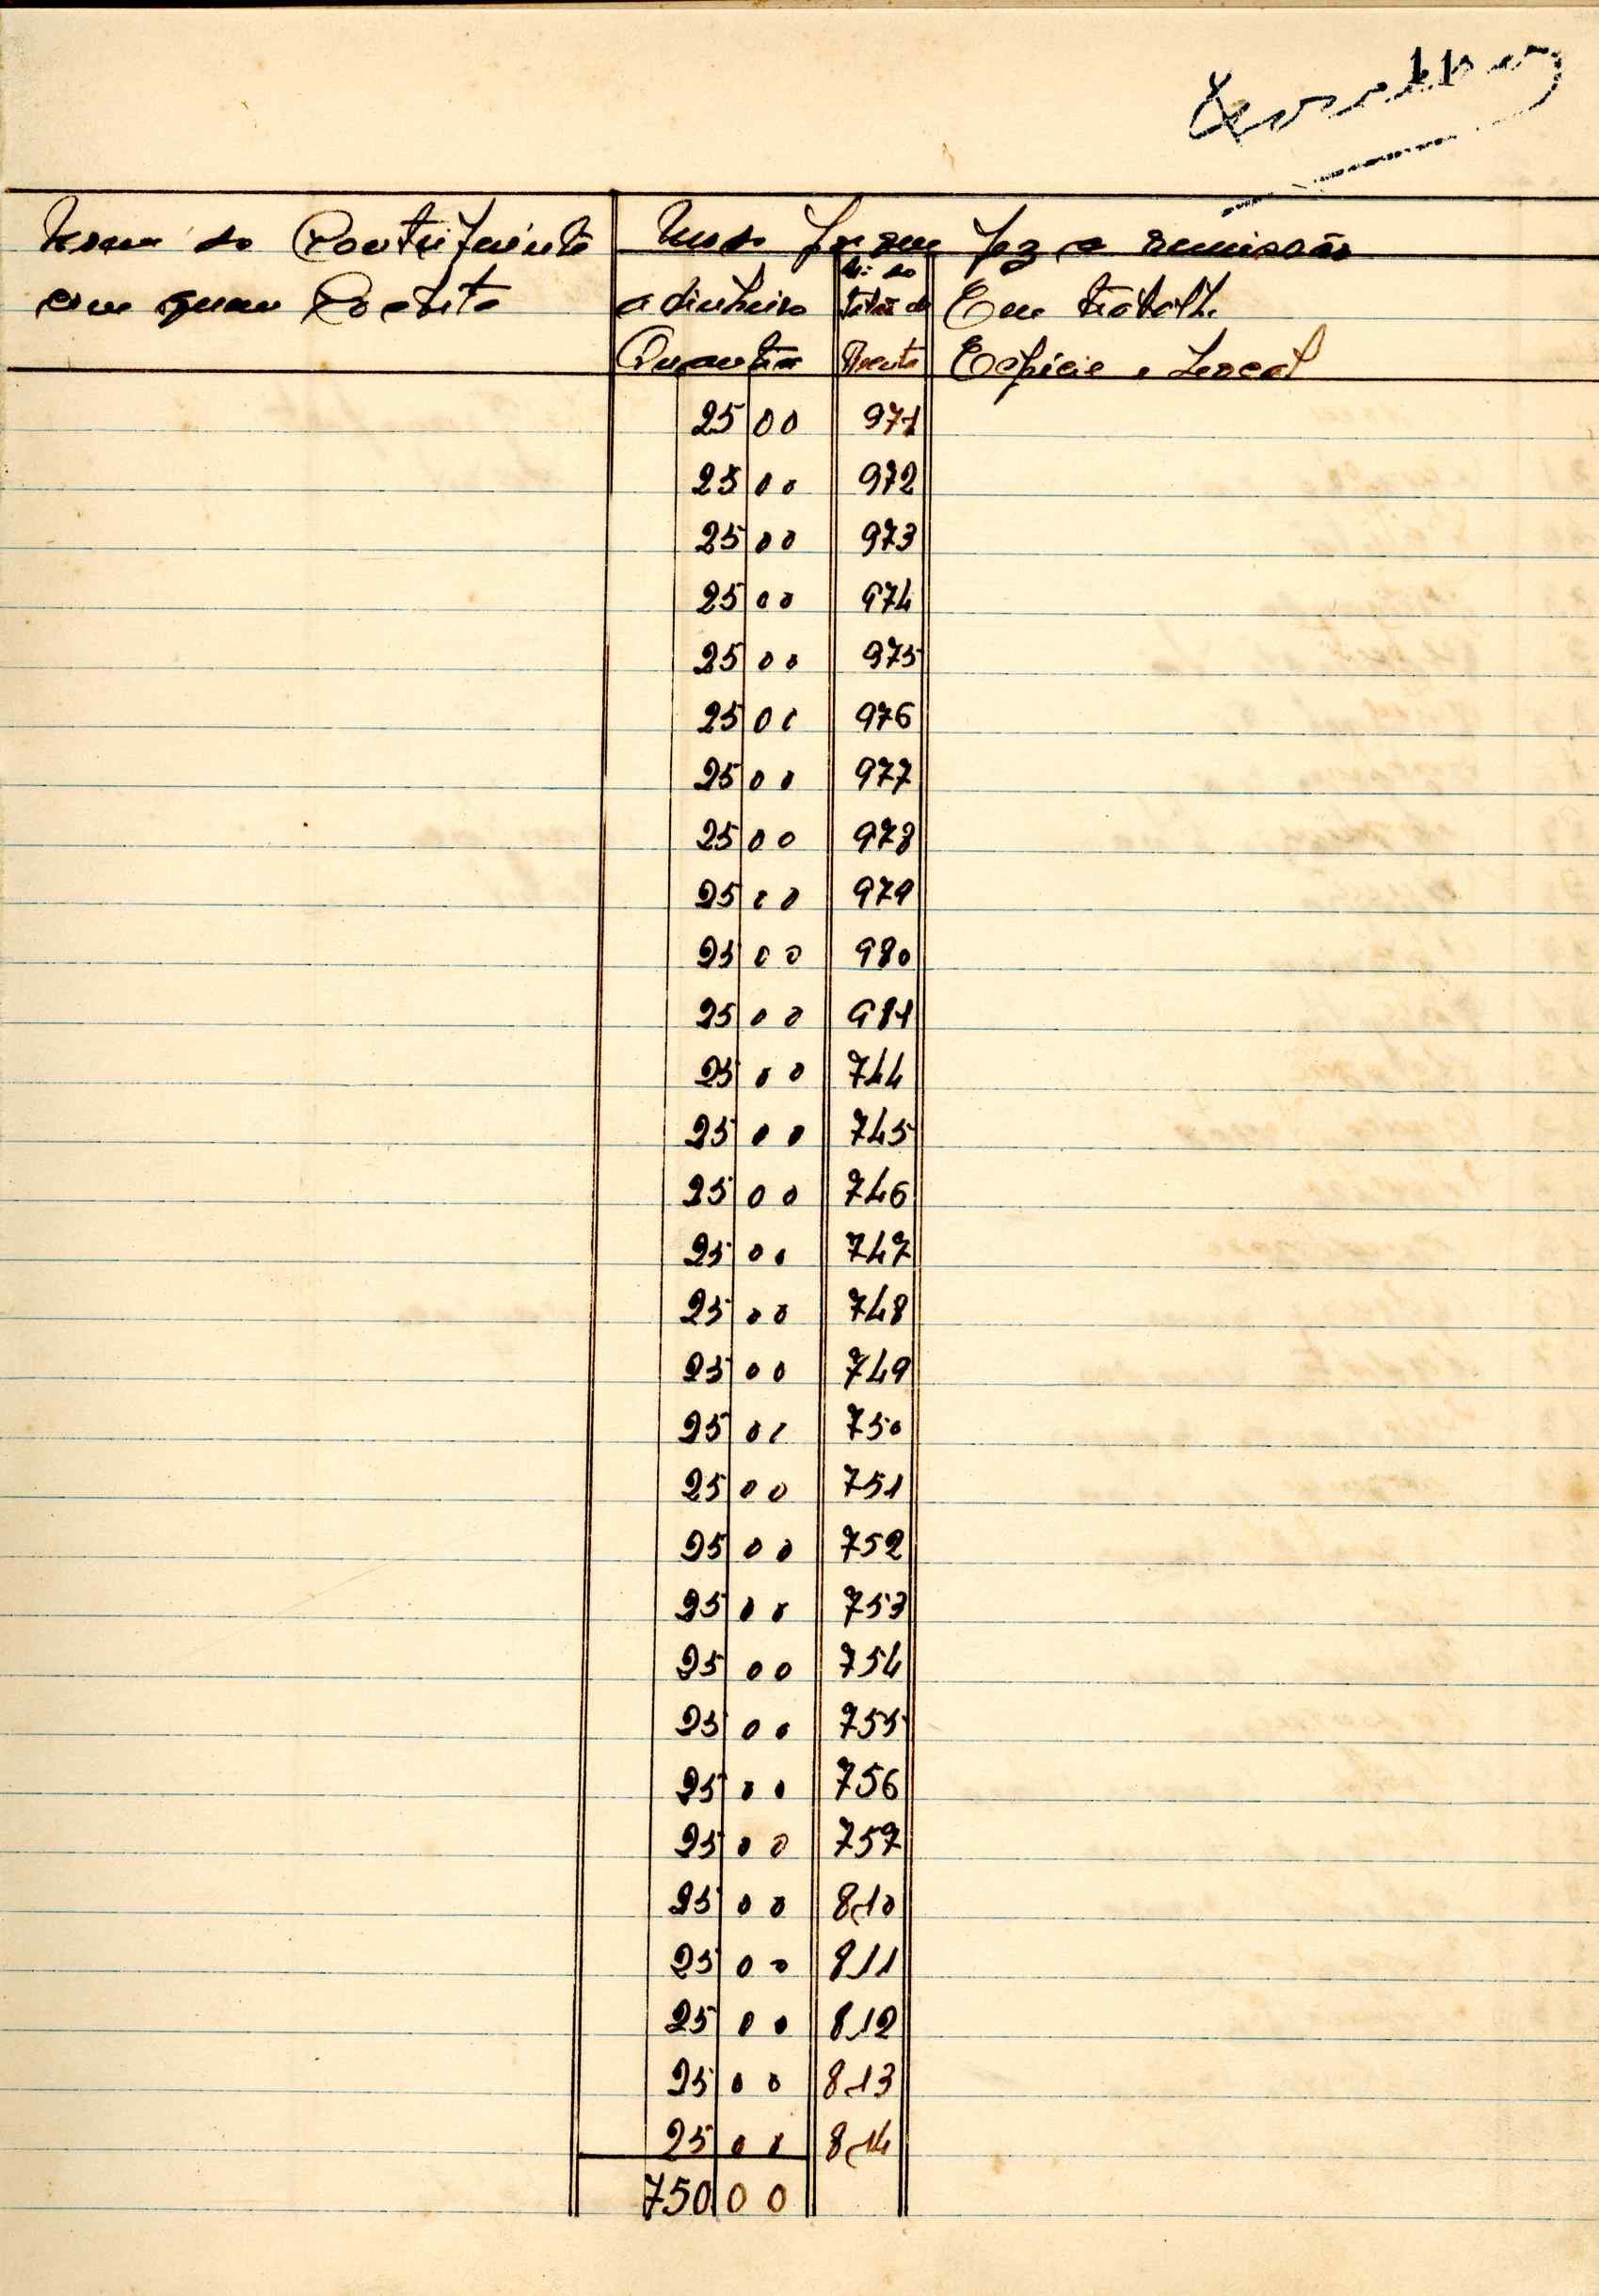 Nome do Contribuinte
com quem Coabita
Modo por que fez a remissão
a dinheiro
Quantia
N.º do
Talão de
Receita
Em trabalho
Espécie e Local
25 00 971
25 00 972
25 00 973
25 00 974
25 00 975
25 00 976
25 00 977
25 00 978
25 00 979
25 00 980
25 00 981
25 00 744
25 00 745
25 00 746
25 00 747
25 00 748
25 00 749
25 00 750
25 00 751
25 00 752
25 00 753
25 00 754
25 00 755
25 00 756
25 00 757
25 00 810
25 00 811
25 00 812
25 00 813
25 00 814
750 00